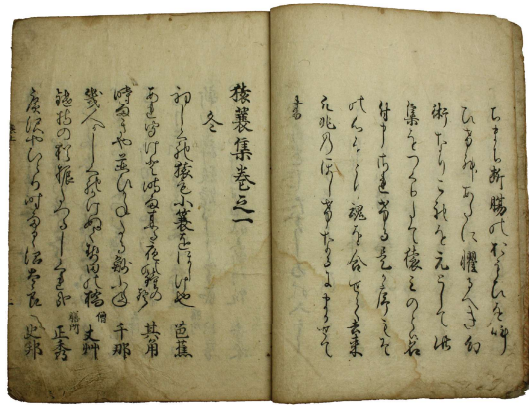 ちまち断腸のおもひを叫
ひけむあたに懼るへき幻
術なりこれを元として此
集をつくりたて猿みのとは名
付申されける是か序もそ
の心をとり魂を合せて去来
凡兆のほしけなるにまかせて
書
猿蓑集巻之一
冬
初しくれ猿も小蓑をほしけ也 芭蕉
あれ聞けと時雨来る夜の鐘の声 其角
時雨きや並ひかねたる魦ふね 千那
幾人かしくれかけぬく勢田の橋 僧 丈艸
鑓持の猶振たつるしくれ哉 膳所 正秀
広沢やひとり時雨るゝ沼太良 史邦